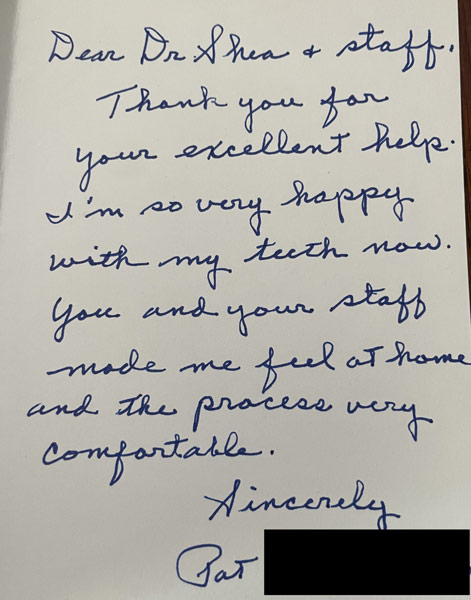 Dear Dr Shea & staff.
Thank you for
your excellent help.
I'm so very happy
with my teeth now.
You and your staff
made me feel at home
and the process very
comfortable.
Sincerely
Pat